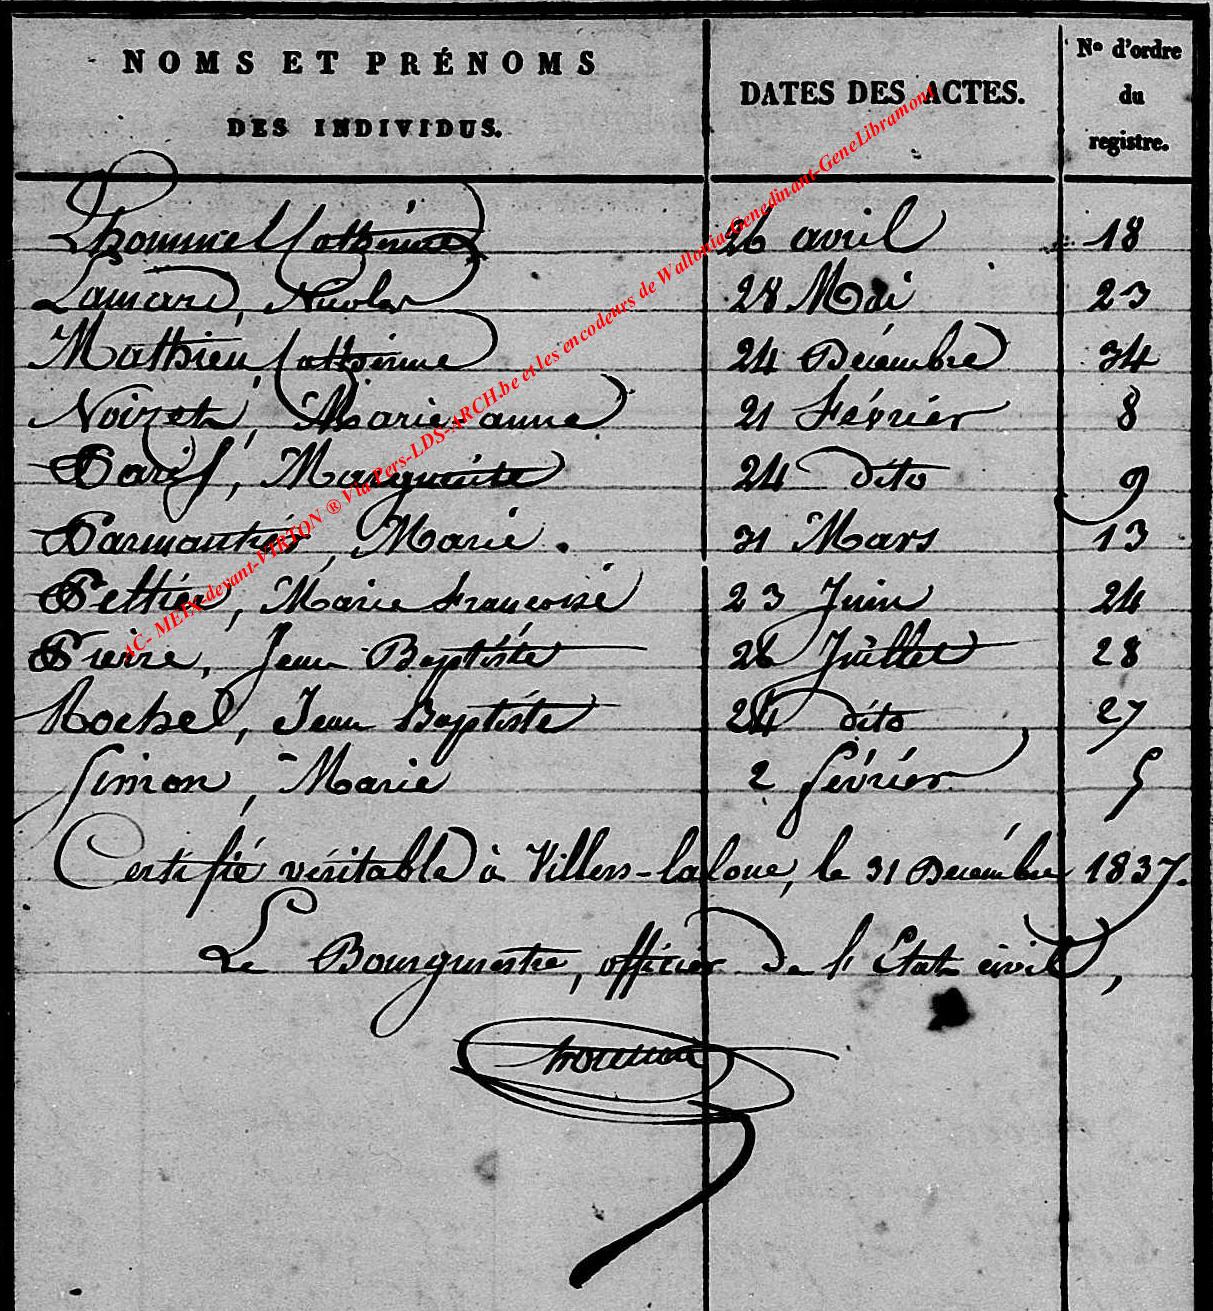 NOMS ET PRÉNOMS
DES INDIVIDUS.
DATES DES ACTES.
No d'ordre
du
registre.
Lhommel Catherinne 26 avril 18
Lamard, Nicolas 28 Mai 23
Mathieu Catherinne 24 Décembre 34
Noizet, Marie-anne 21 Février 8
Paris, Marguerite 24 dito 9
Parmantié, Marie. 31 Mars 13
Peltier, Marie Françoise 23 Juin 24
Pierre, Jean Baptiste 26 Juillet 28
Rochel, Jean Baptiste 24 dito 27
Simon, Marie 2 février 5
Certifié véritable à Villers-laloue, le 31 Décembre 1837.
Le Bourgmestre, officier de l'État civil,
AC- MEIX-devant-VIRTON ® Via Pers-LDS-ARCH.be et les encodeurs de Wallonia-Genedinant-GeneLibramont